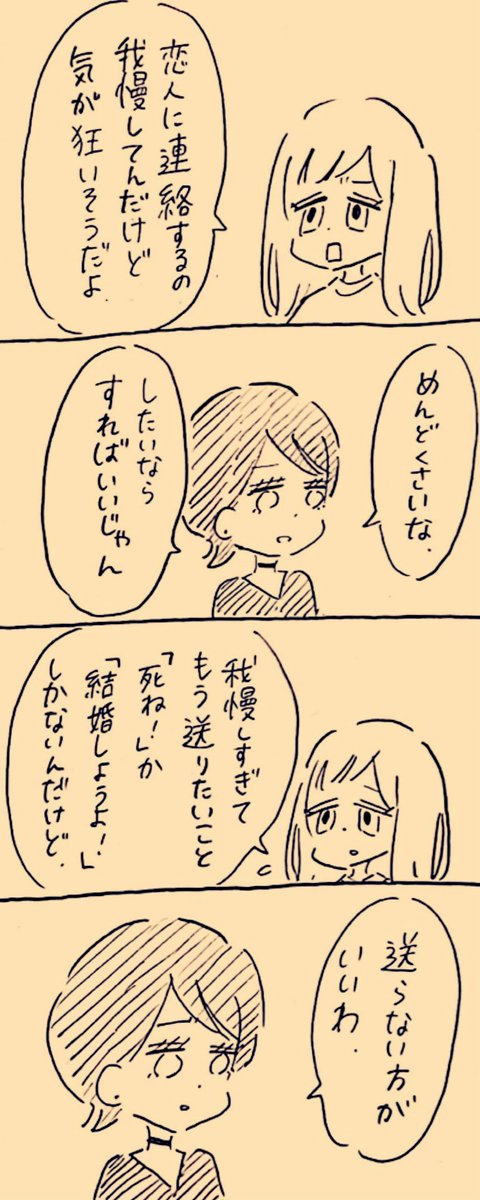 恋人に連絡するの
我慢してんだけど
気が狂いそうだよ
めんどくさいな.
したいなら
すればいいじゃん
我慢しすぎて
もう送りたいこと
「死ね!」か
「結婚しようよ!」
しかないんだけど.
送らない方が
いいわ.